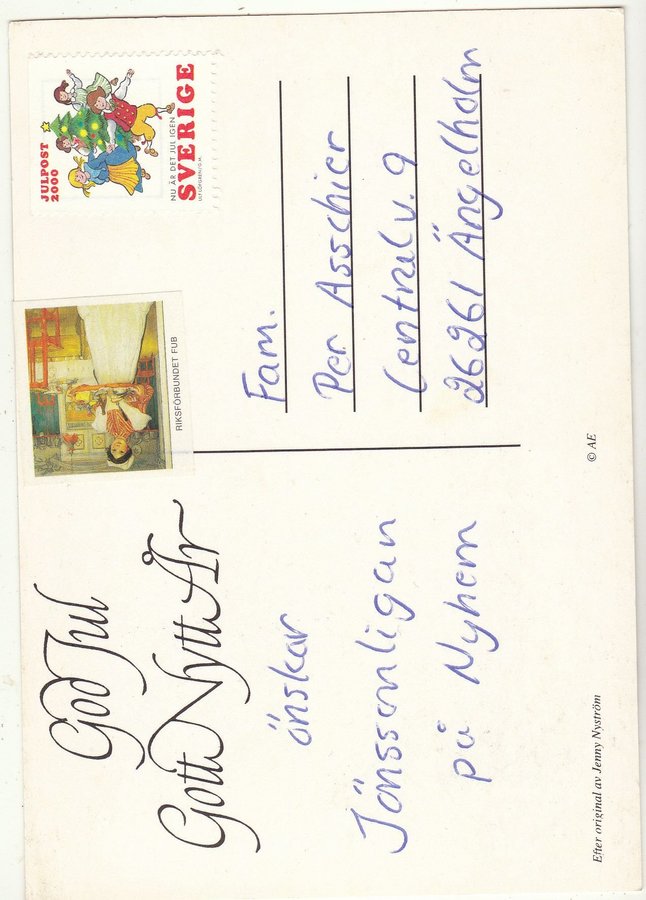 God Jul
Gott Nytt År
önskar
Jönssonligan
på Nyhem
Efter original av Jenny Nyström
JULPOST
2000
NU ÄR DET JUL IGEN
SVERIGE
RIKSFÖRBUNDET FUB
Fam.
Per Asschier
Centralv. 9
26261 Ängelholm
© AE